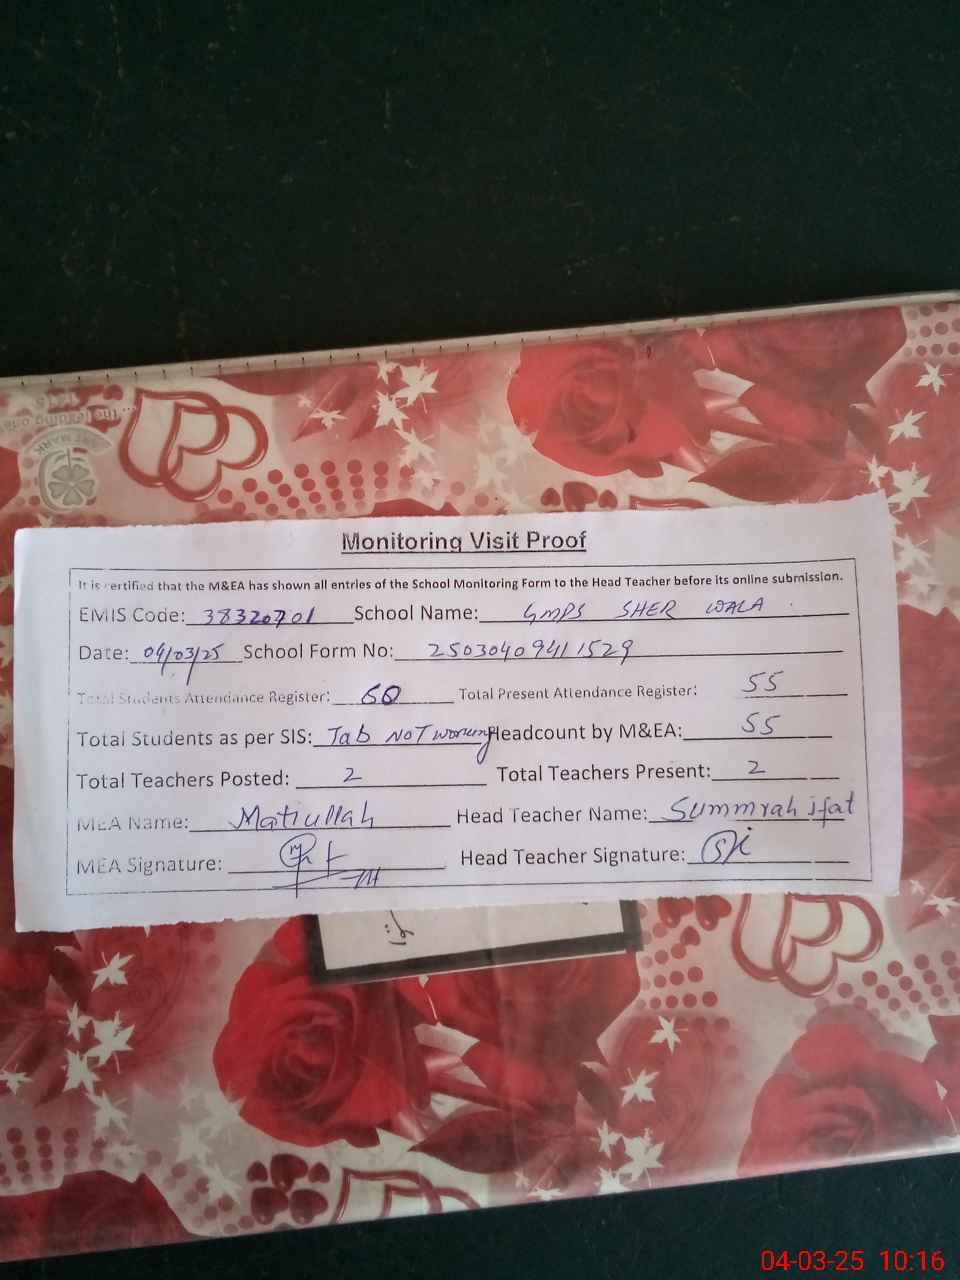 Monitoring Visit Proof
It is certified that the M&EA has shown all entries of the School Monitoring Form to the Head Teacher before its online submission.
EMIS Code: 38320701 School Name: GMPS SHER WALA
Date: 04/03/25 School Form No: 25030409411529
Total Students Attendance Register: 60 Total Present Attendance Register: 55
Total Students as per SIS: Tab NOT working Headcount by M&EA: 55
Total Teachers Posted: 2 Total Teachers Present: 2
MEA Name: Matiullah Head Teacher Name: Summrah ifat
MEA Signature: Head Teacher Signature: Si
04-03-25 10:16